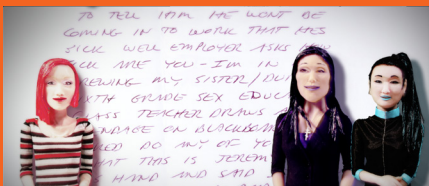 TO TELL HIM HE WONT BE
COMING IN TO WORK THAT HES
SICK WELL EMPLOYER ASKS HOW
SICK ARE YOU - I'M IN
SCREWING MY SISTER/
SIXTH GRADE SEX EDUC
CLASS TEACHER DRAWS A
ON BLACKBOARD
DO ANY OF YO
THIS IS JEREM
HAND AND SAID